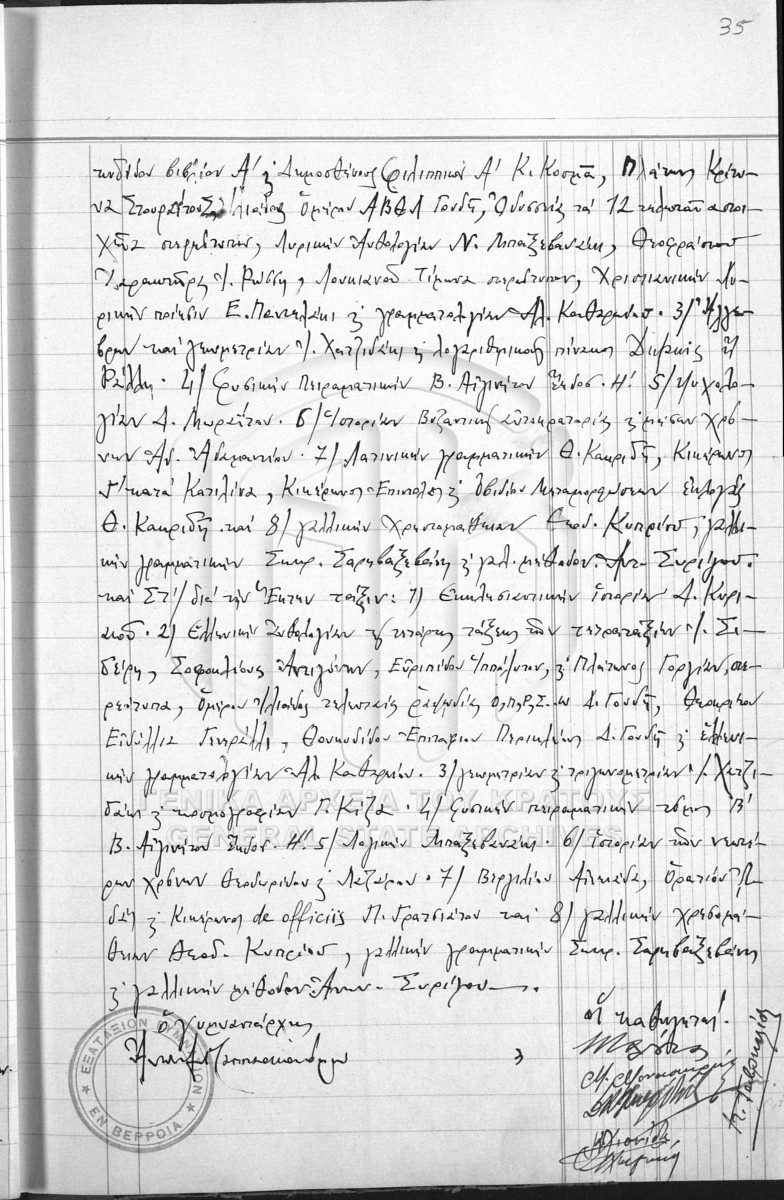 35
κυδίδου βιβλίον Α' ϗ Δημοσθένους Φιλιππικόν Α' Κ. Κοσμᾶ, Πλάτωνος Κρίτω-
να Σταυράτου, Ἰλιάδος Ὁμήρου ΑΒΘΛ Γουδῆ, Ὀδυσσείας τά 12 τελευταῖα στοι-
χεῖα στερεότυπον, Λυρικήν Ἀνθολογίαν Ν. Μπαξεβανάκη, Θεοφράστου
Χαρακτῆρας Ἰ. Ρώσση, Λουκιανοῦ Τίμωνα στερεότυπον, Χριστιανικήν Λυ-
ρικήν ποίησιν Ε. Παντελάκη ϗ γραμματολογίαν Αλ. Καθαρίου. 3/ Ἄλγε-
βραν καί γεωμετρίαν Ἰ. Χατζιδάκι ϗ λογαριθμικούς πίνακας
Ράλλη. 4/ Φυσικήν Πειραματικήν Β. Αἰγινήτου ἔκδος. Η'. 5/ Ψυχολο-
γίαν Δ. Μωραΐτου. 6/ Ἱστορίαν Βυζαντινῆς αὐτοκρατορίας ϗ μέσων χρό-
νων Αδ. Ἀδαμαντίου. 7/ Λατινικήν γραμματικήν Θ. Κακριδῆ, Κικέρωνος
κατά Κατιλίνα, Κικέρωνος Ἐπιστολάς ϗ Ὀβιδίου Μεταμορφώσεων ἐκλογάς
Θ. Κακριδῆ καί 8/ γαλλικήν Χρηστομάθειαν Θεοδ. Κυπρίου, γαλλι-
κήν γραμματικήν Σωκρ. Σαρηβαξεβάνη ϗ γαλ. μέθοδον Αντ. Συρίγου.
καί ΣΤ'/ διά τήν Ἕκτην τάξιν: 1) Ἐκκλησιαστικήν ἱστορίαν Δ. Κυρι-
ακοῦ. 2) Ἑλληνικήν Ἀνθολογίαν τῆς τετάρτης τάξεως τῶν τετραταξίων Ἰ. Σι-
δέρη, Σοφοκλέους Ἀντιγόνην, Εὐριπίδου Ἱππόλυτον, ϗ Πλάτωνος Γοργίαν, στε-
ρεότυπα, Ὁμήρου Ἰλιάδος τελευταίας ῥαψωδίας Δ. Γουδῆ, Θεοκρίτου
Εἰδύλλια Γενεράλη, Θουκυδίδου Ἐπιτάφιον Περικλέους Δ. Γουδῆ ϗ ἑλληνι-
κήν γραμματολογίαν Αλ. Καθαρίου. 3/ γεωμετρίαν ϗ τριγωνομετρίαν Ἰ. Χατζι-
δάκι ϗ κοσμογραφίαν Γ. Κίζα. 4/ Φυσικήν πειραματικήν τόμος Β'
Β. Αἰγινήτου ἔκδος. Η'. 5/ Λογικήν Μπαξεβανάκη. 6/ ἱστορίαν τῶν νεωτέ-
ρων χρόνων Θεοδωρίδου ϗ Λαζάρου. 7/ Βιργιλίου Αἰνειάδα, Ὁρατίου Ὠ-
δάς ϗ Κικέρωνος de officiis Π. Γρατσιάτου καί 8/ γαλλικήν χρηστομά-
θειαν Θεοδ. Κυπρίου, γαλλικήν γραμματικήν Σωκρ. Σαρηβαξεβάνη
ϗ γαλλικήν μέθοδον Ἀντων. Συρίγου.
ὁ Γυμνασιάρχης
Οἱ καθηγηταί
ΓΕΝΙΚΑ ΑΡΧΕΙΑ ΤΟΥ ΚΡΑΤΟΥΣ
GENERAL STATE ARCHIVES
ΕΞΑΤΑΞΙΟΝ ΓΥΜΝΑΣΙΟΝ
ΕΝ ΒΕΡΡΟΙΑ